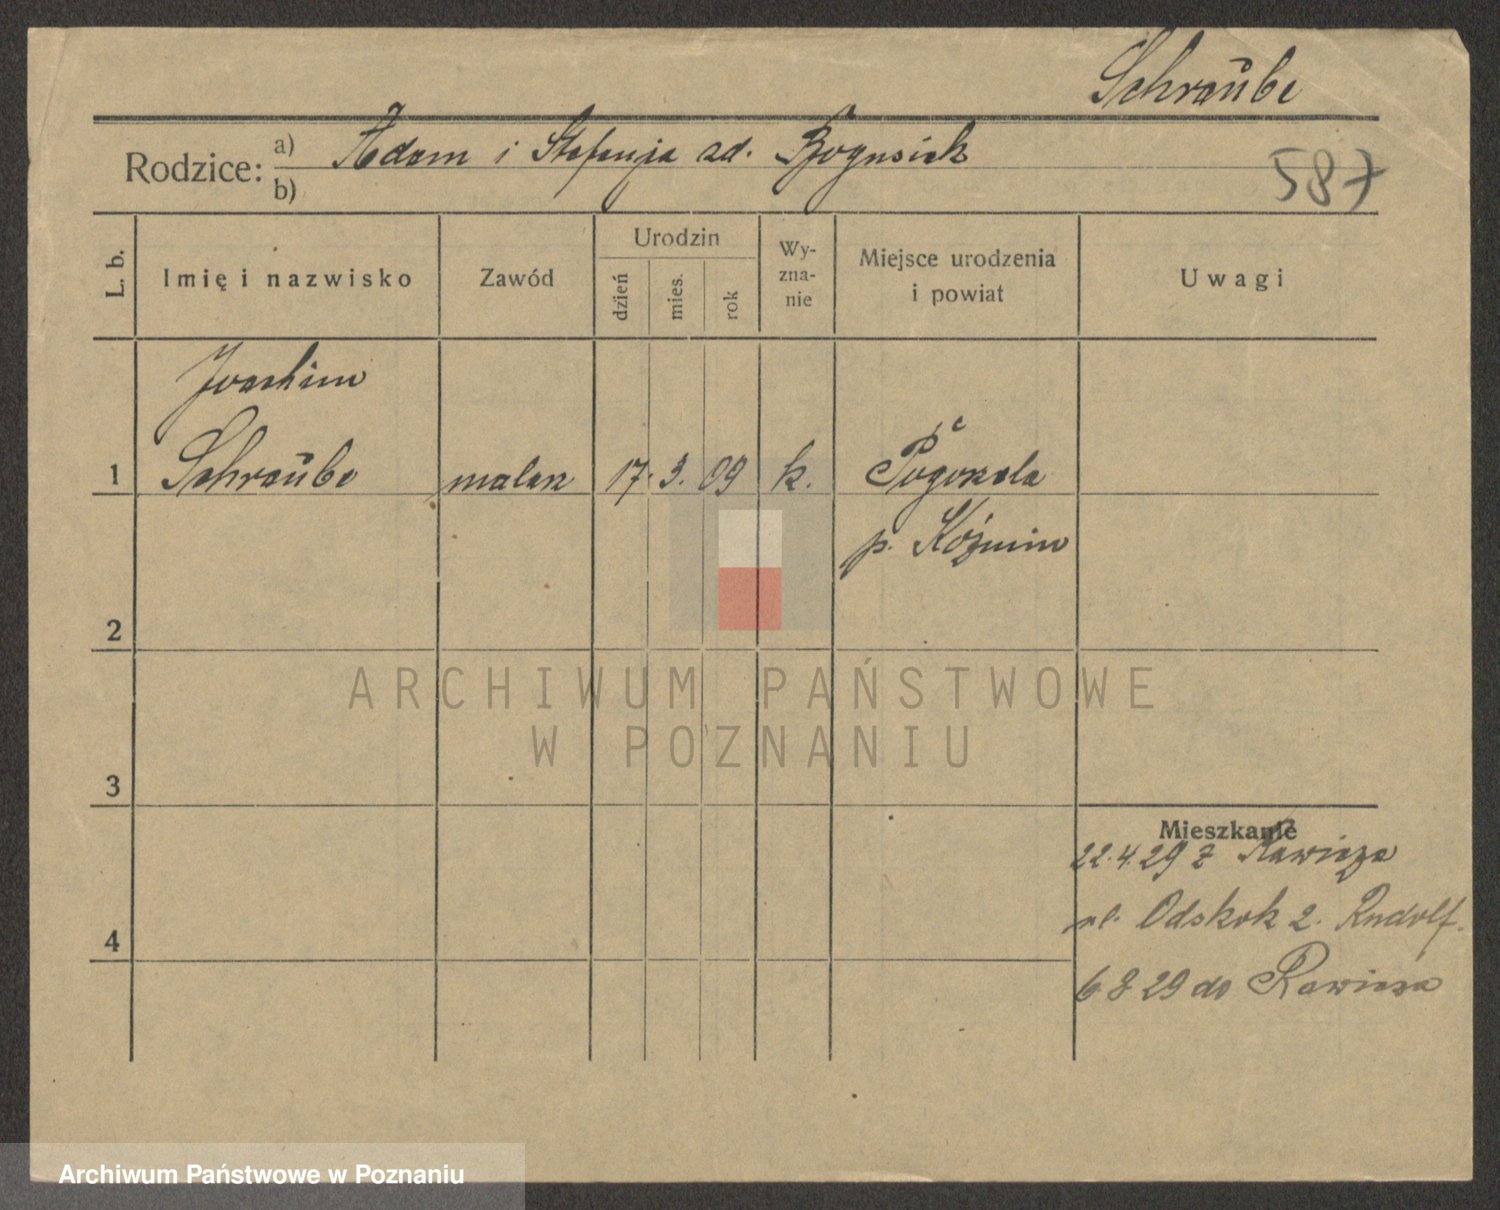 Schraube
Rodzice: a) Adam i Stefanja zd. Bogusiak
b)
587
L. b.
Imię i nazwisko
Zawód
Urodzin
dzień
mies.
rok
Wy-
zna-
nie
Miejsce urodzenia
i powiat
Uwagi
Joachim
1 Schraube malarz 17. 3. 09 k. Pogorzela
p. Koźmin
2
ARCHIWUM PAŃSTWOWE
W POZNANIU
3
Mieszkanie
22.4.29 z Rawicza
ul. Odskok 2. Rudolf.
4
6 8 29 do Rawicza
Archiwum Państwowe w Poznaniu